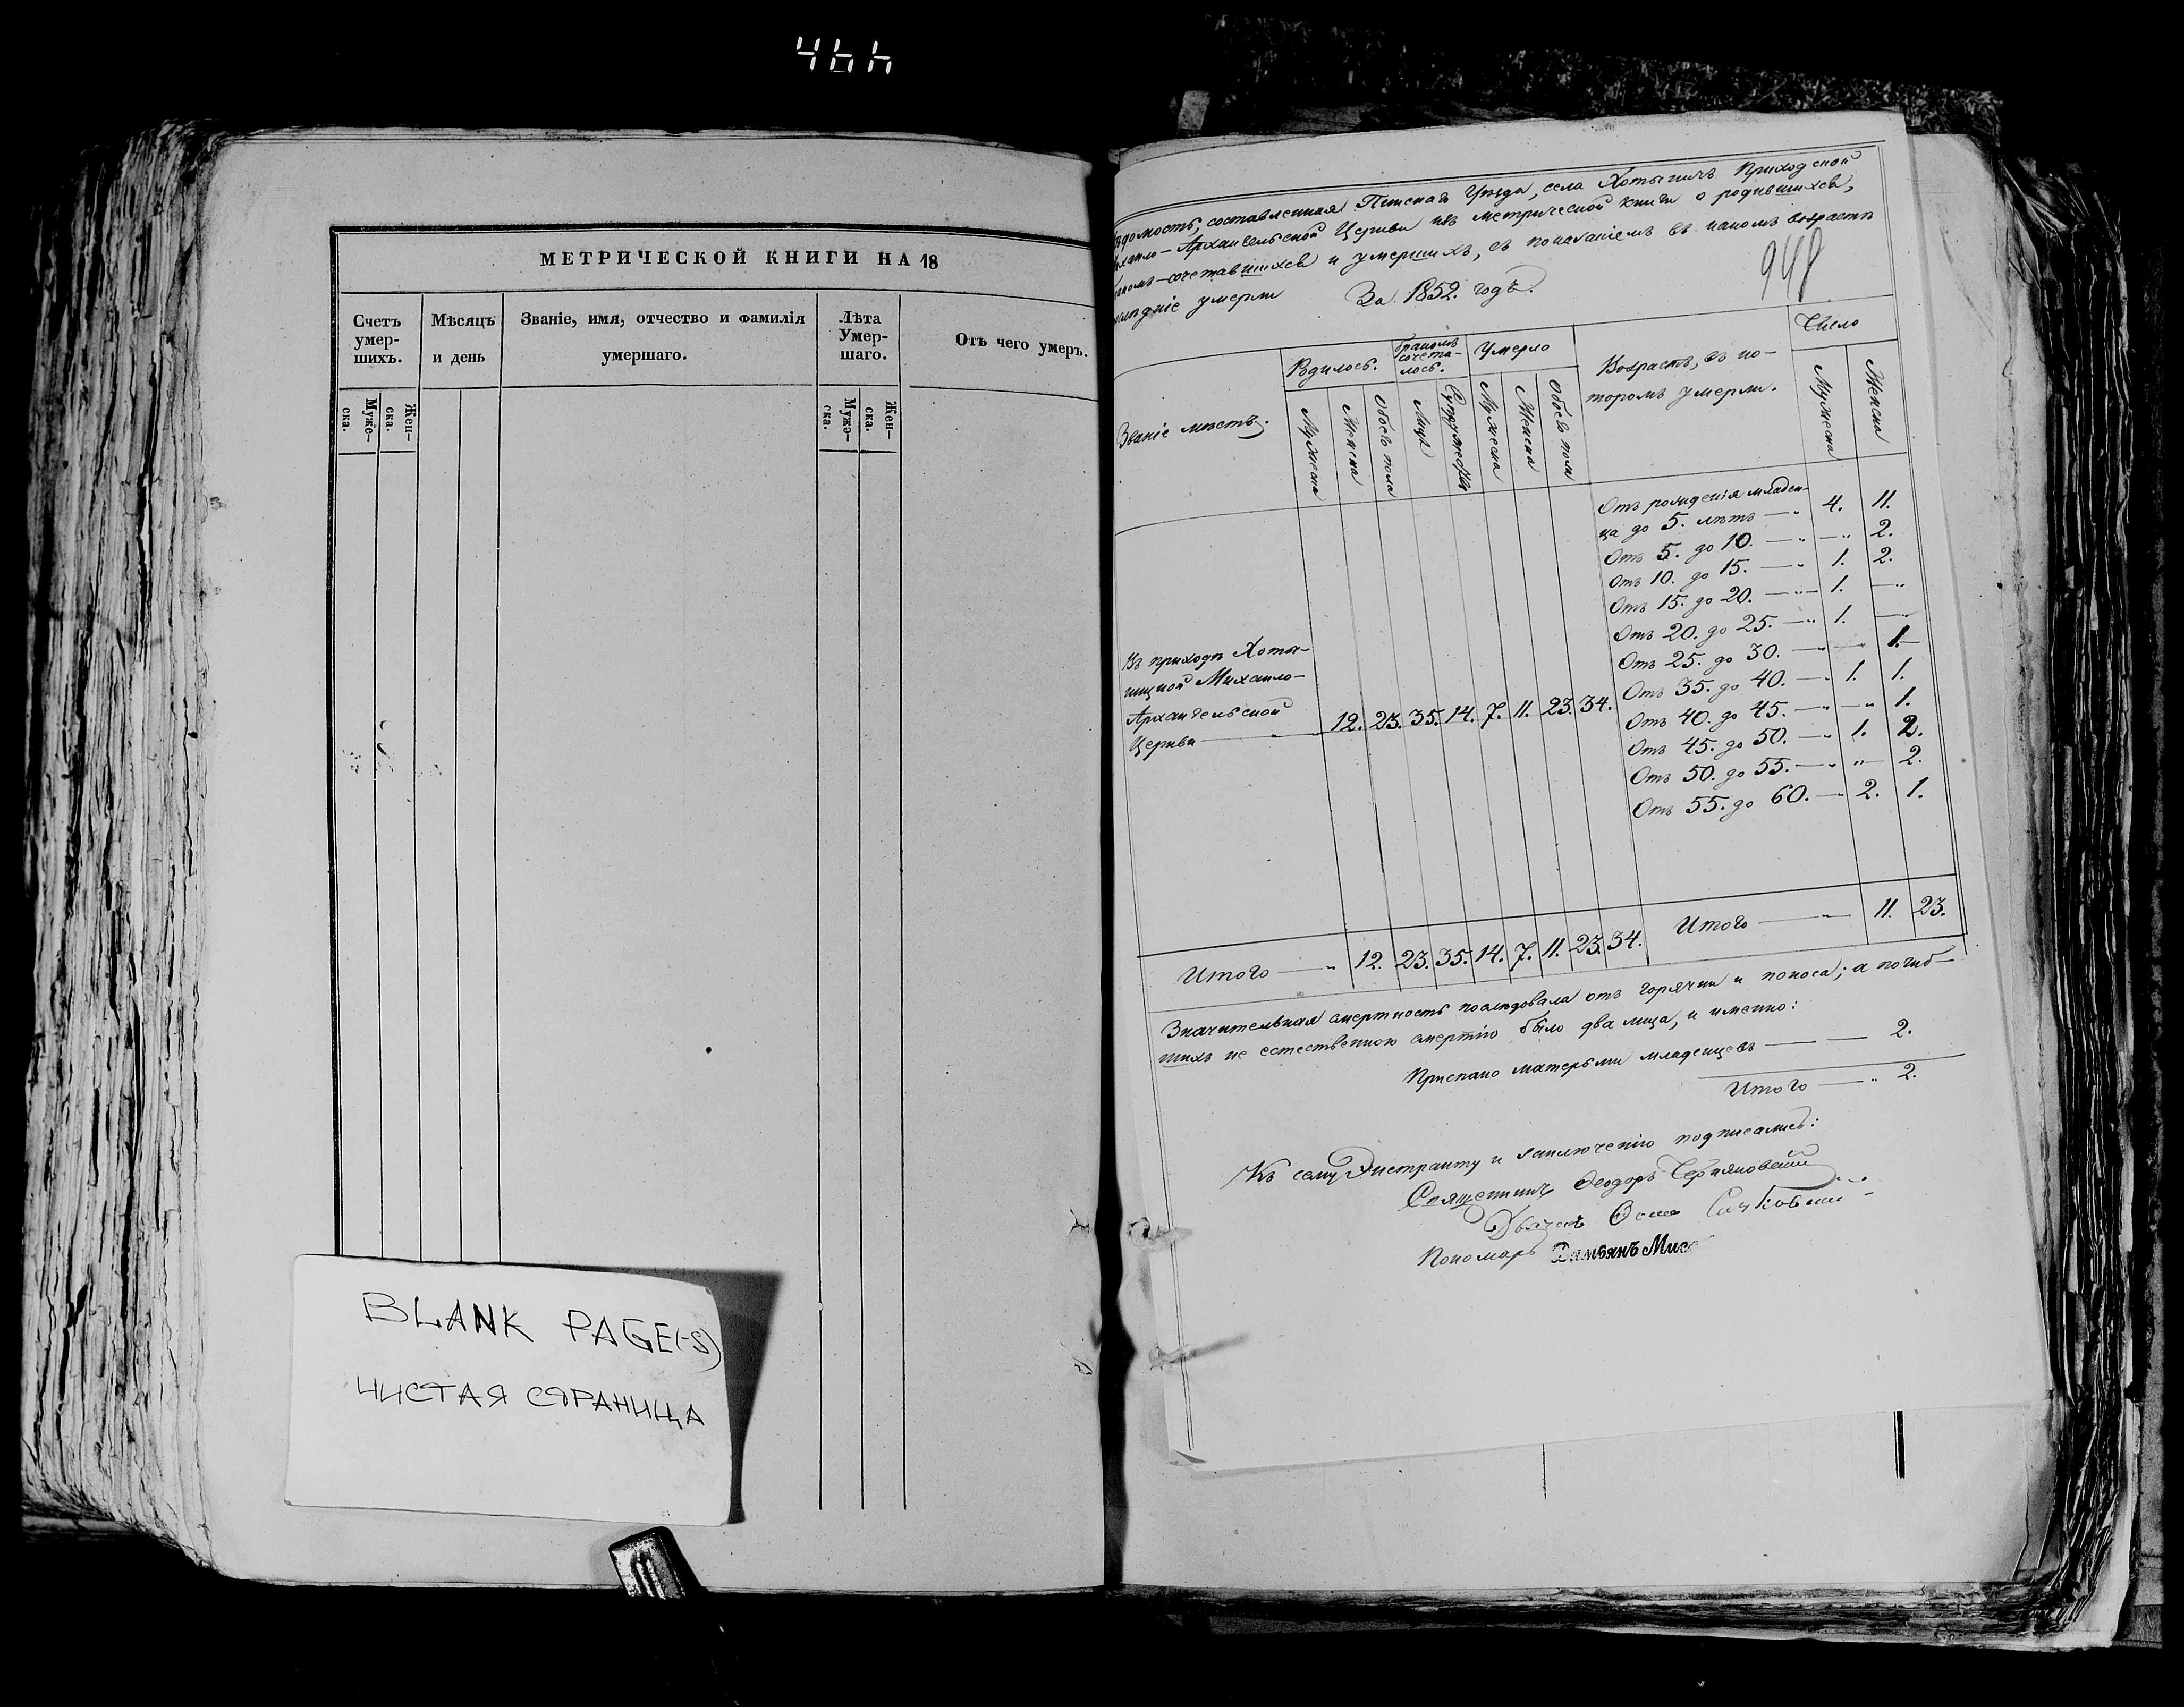 МЕТРИЧЕСКОЙ КНИГИ НА 18
Счетъ умер-шихъ.
Мѣсяцъ и день
Званіе, имя, отчество и фамилія умершаго.
Лѣта Умер-шаго.
Отъ чего умеръ.
Муже-ска.
Жен-ска.
Муже-ска.
Жен-ска.
BLANK PAGE(-S)
ЧИСТАЯ СТРАНИЦА
составленная Пинскаго Уѣзда, села Хотыничъ Приходской
Архангельской Церкви изъ метрической книги о родившихся,
сочетавшихся и умершихъ, съ показаніемъ въ какомъ возрастѣ
умерли За 1852. годъ.
948
Званіе мѣстъ.
Родилось.
Бракомъ сочета-лось.
Умерло
Возрастъ, въ ко-
торомъ умерли.
Число
Мужеска
Женска
Обоего пола
Лицъ
Супружествъ
Мужеска
Женска
Обоего пола
Мужеска
Женска
Въ приходѣ Хоты-
ницкой Михаило-
Архангельской
Церкви 12. 23. 35. 14. 7. 11. 23. 34.
Отъ рожденія младен-
ца до 5. лѣтъ — 4. 11.
Отъ 5. до 10. — „ — „ 2.
Отъ 10. до 15. — „ 1. 2.
Отъ 15. до 20. — „ 1. — „
Отъ 20. до 25. — „ 1. —
Отъ 25. до 30. — „ — 1.
Отъ 35. до 40. — „ 1. 1.
Отъ 40. до 45. — „ — „ 1.
Отъ 45. до 50. — „ 1. 2.
Отъ 50. до 55. — „ „ — 2.
Отъ 55. до 60. — 2. 1.
Итого — „ 12. 23. 35. 14. 7. 11. 23. 34. Итого — 11. 23.
Значительная смертность послѣдовала отъ горячки и поноса; а погиб-
шихъ не естественною смертію было два лица, и именно:
Приспано матерьми младенцевъ — — 2.
Итого — „ 2.
Къ сему Экстракту и заключенію подписались:
Священникъ Ѳеодоръ
Дьячокъ
Пономарь Дамьянъ